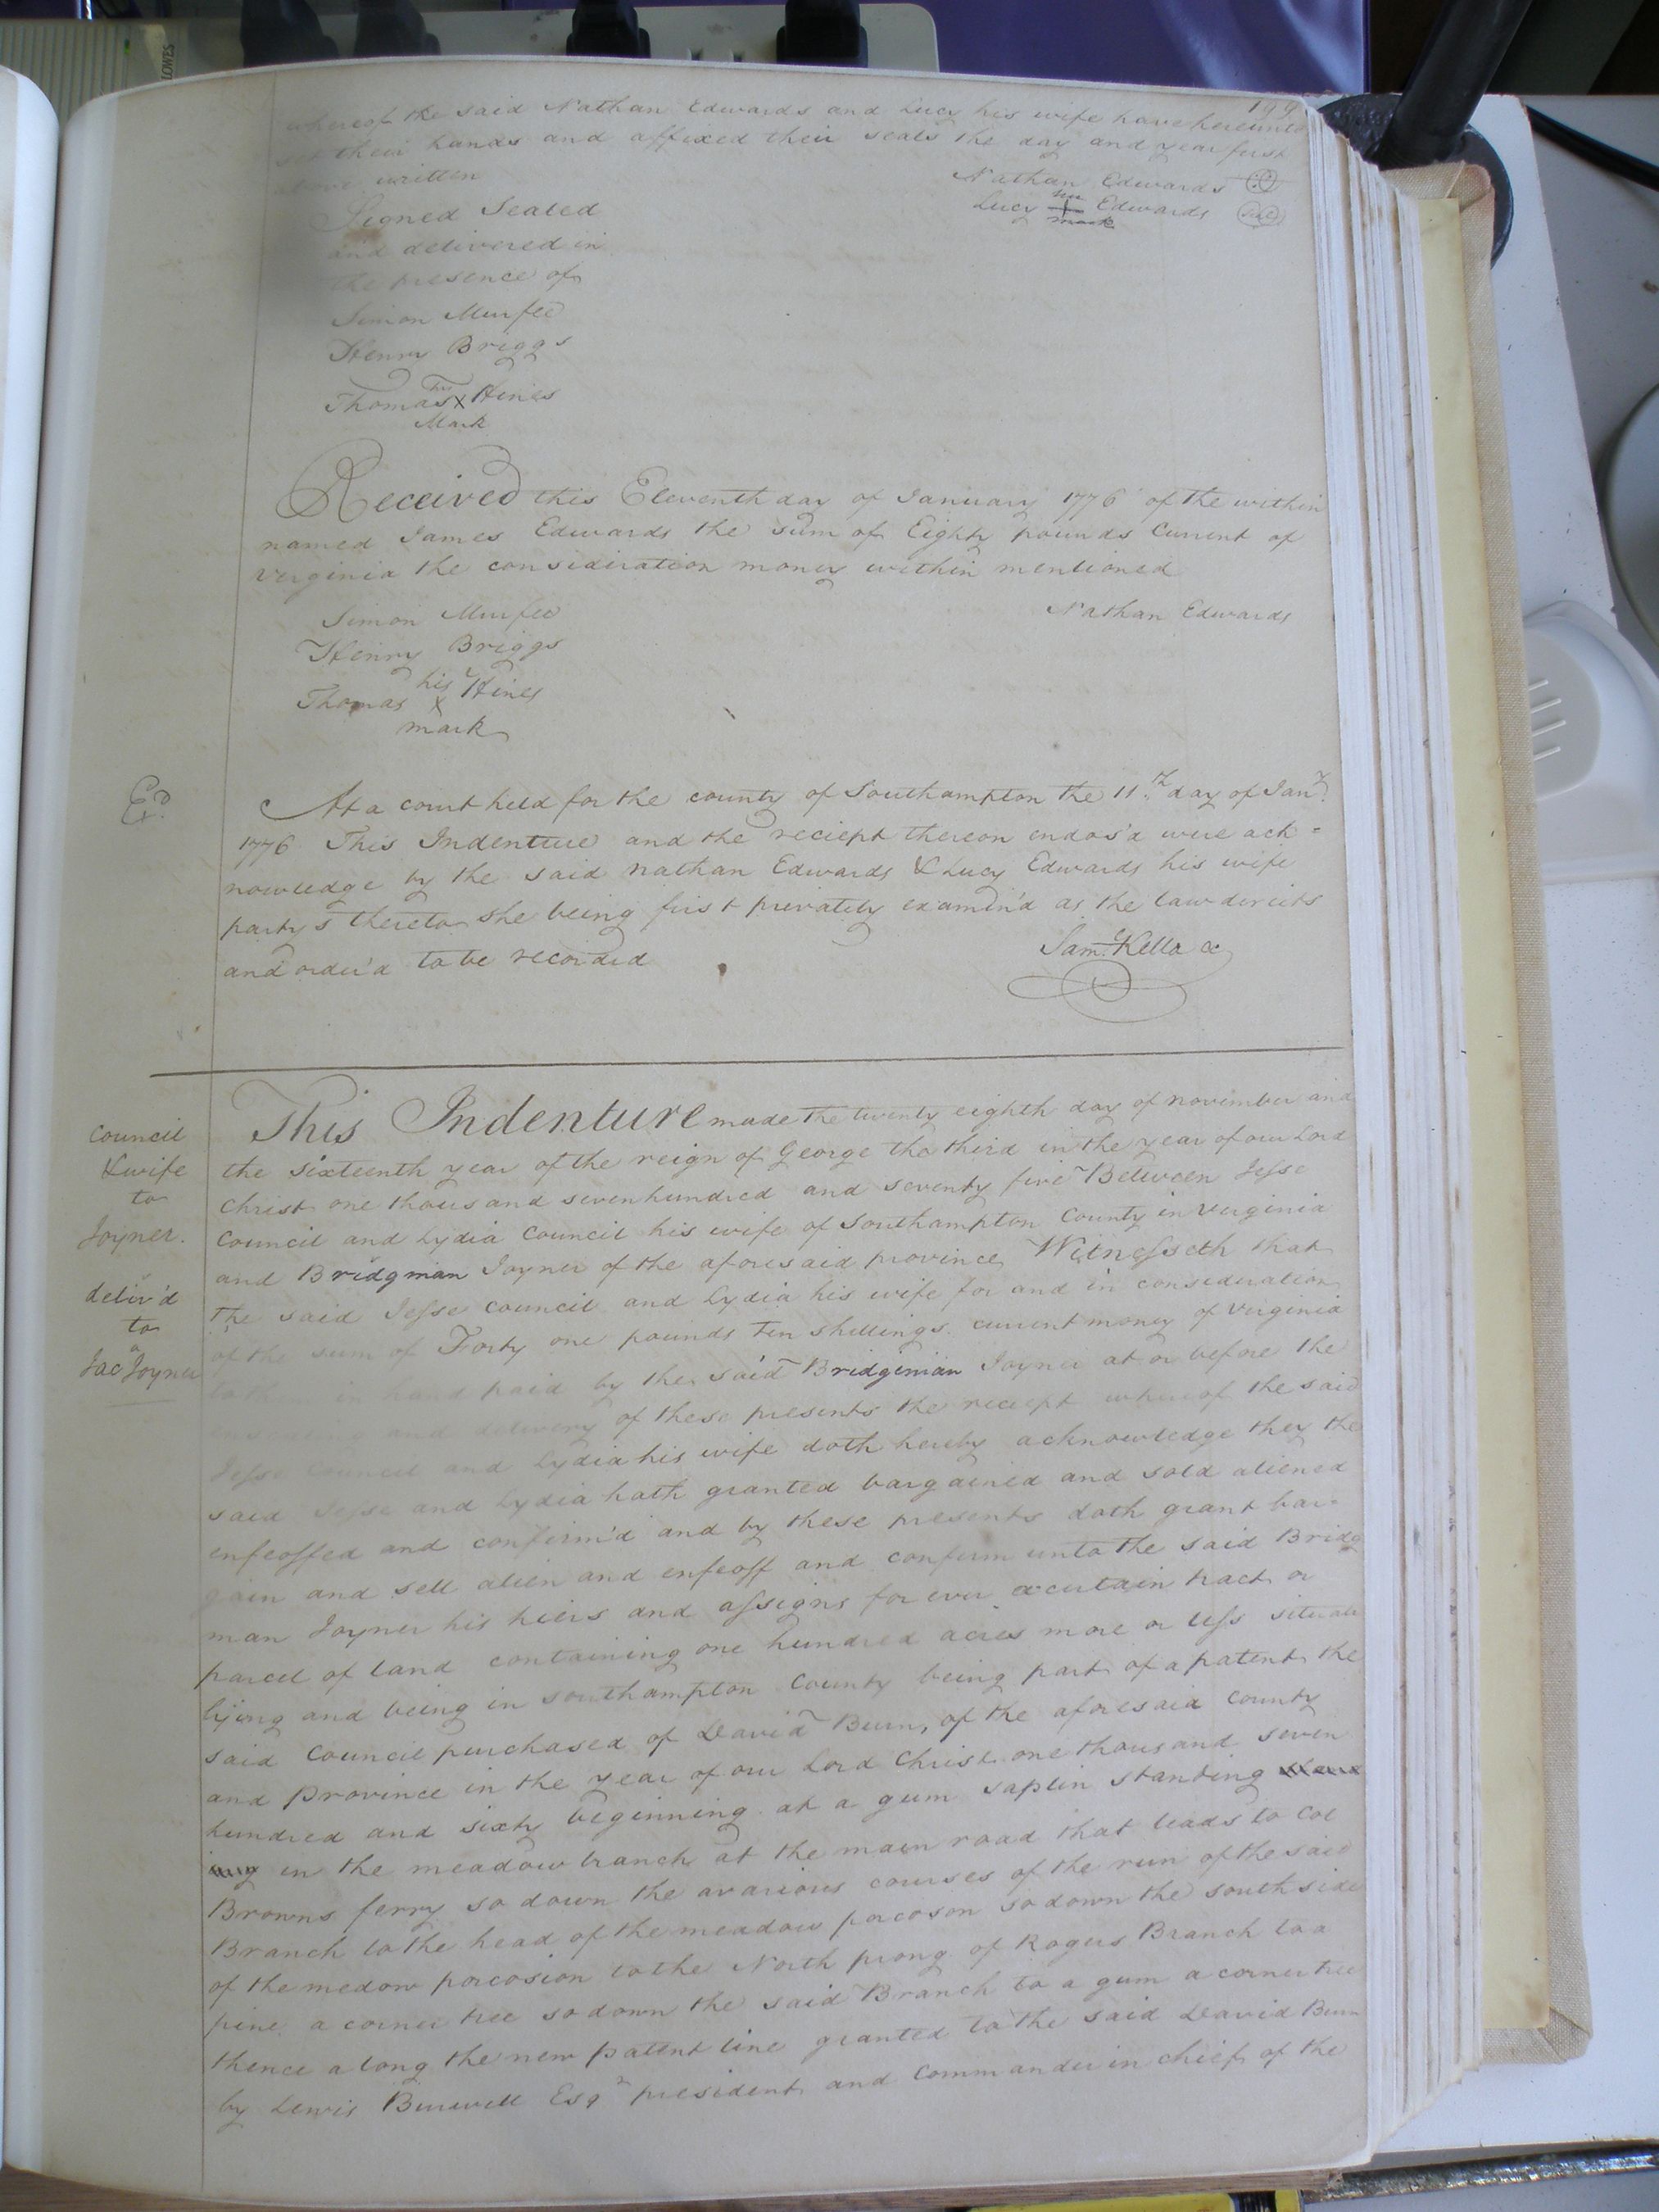 199
whereof the said Nathan Edwards and Lucy his wife have hereunto
set their hands and affixed their seals the day and year first
above written
Nathan Edwards
Lucy her + mark Edwards (seal)
Signed Sealed
and delivered in
the presence of
Simon Murfee
Henry Briggs
Thomas his x Mark Hines
Received this Eleventh day of January 1776 of the within
named James Edwards the sum of Eighty pounds Current of
Verginia the consideration money within mentioned
Nathan Edwards
Simon Murfee
Henry Briggs
Thomas his x mark Hines
Ed.
At a court held for the county of Southampton the 11th day of Jany.
1776 This Indenture and the reciept thereon endos'd were ack=
nowledge by the said Nathan Edwards & Lucy Edwards his wife
party's thereto she being first privately examin'd as the law directs
and order'd to be recorded
Saml. Kello
Council
& wife
to
Joyner.
deliv'd
to
Jac Joyner
This Indenture made the twenty eighth day of november and
the sixteenth year of the reign of George the third in the year of our Lord
Christ one thousand seven hundred and seventy five Between Jesse
Council and Lydia Council his wife of Southampton County in Verginia
and Bridgman Joyner of the aforesaid province Witnesseth that
the said Jesse Council and Lydia his wife for and in consideration
of the sum of Forty one pounds Ten shillings current money of Verginia
to them in hand paid by the said Bridgeman Joyner at or before the
ensealing and delivery of these presents the reciept whereof the said
Jesse Council and Lydia his wife doth hereby acknowledge they the
said Jesse and Lydia hath granted bargained and sold aliened
enfeoffed and confirm'd and by these presents doth grant bar=
gain and sell alien and enfeoff and confirm unto the said Bridg
man Joyner his hiers and assigns for ever a certain tract or
parcel of land containing one hundred acres more or less situate
lying and being in Southampton County being part of a patent the
said Council purchased of David Burn, of the aforesaid County
and Province in the year of our Lord Christ one thousand seven
hundred and sixty beginning at a gum saplin standing
in the meadow branch at the main road that leads to Col
Browns ferry so down the avarious courses of the run of the said
Branch to the head of the meadow pocoson so down the south side
of the medow pocosion to the North prong of Rogers Branch to a
pine a corner tree so down the said Branch to a gum a corner tree
thence along the new patent line granted to the said David Burn
by Lewis Burwell Esqr president and Commander in chief of the